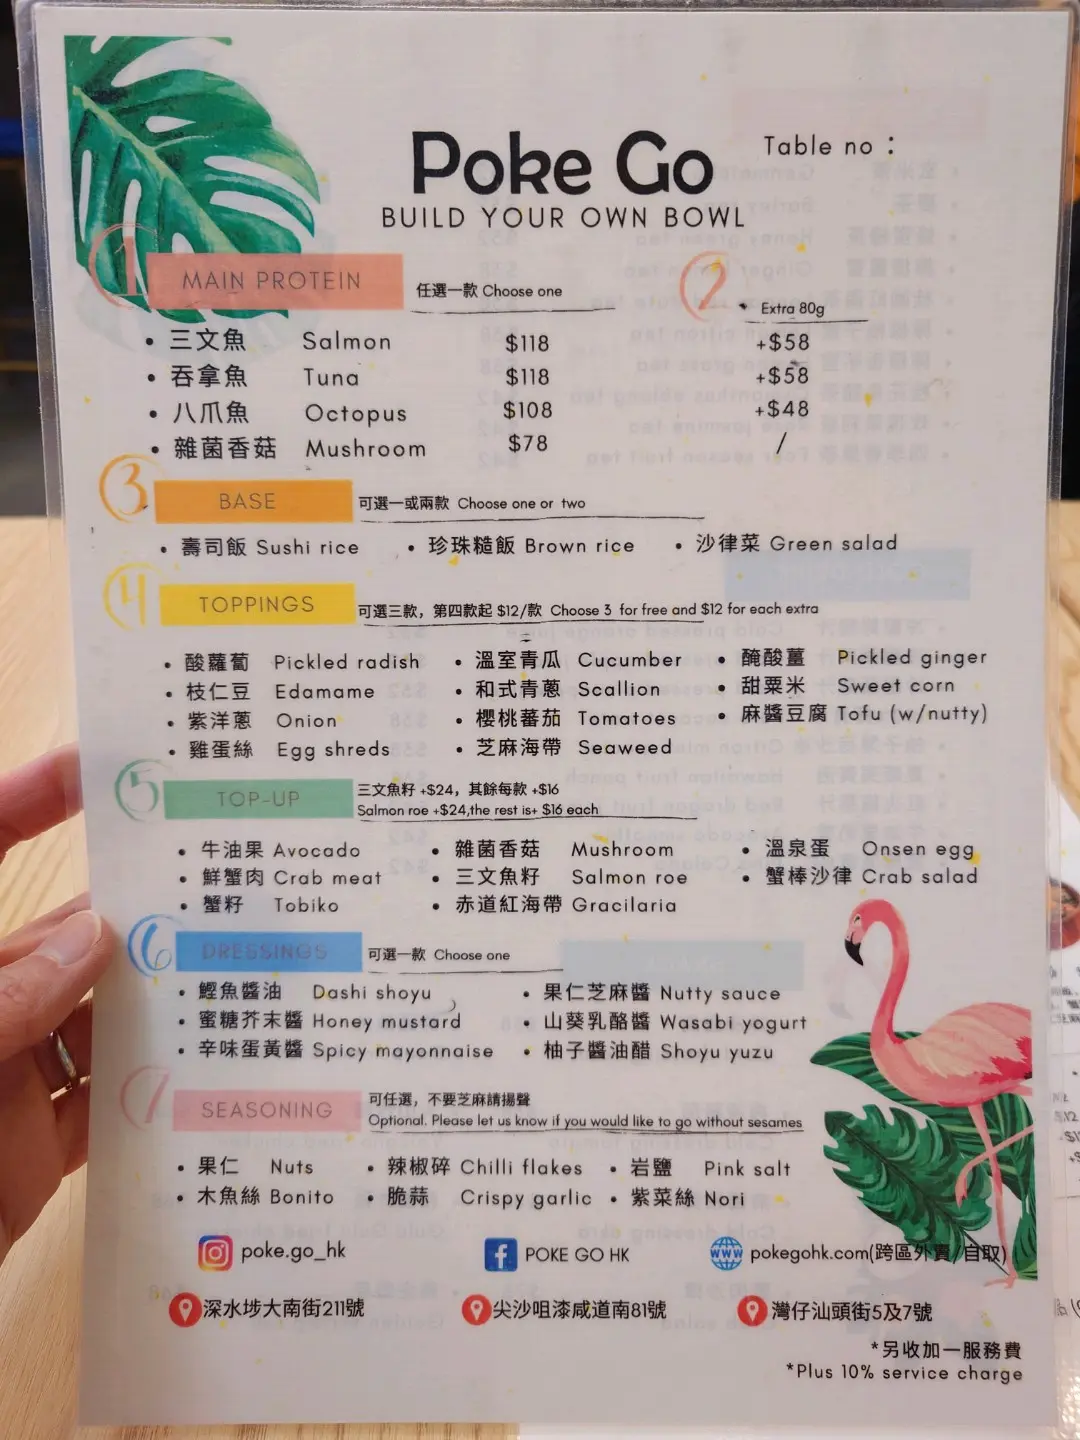 Poke Go
Table no：
BUILD YOUR OWN BOWL
1 MAIN PROTEIN 任選一款 Choose one
2 Extra 80g
• 三文魚 Salmon $118 +$58
• 吞拿魚 Tuna $118 +$58
• 八爪魚 Octopus $108 +$48
• 雜菌香菇 Mushroom $78 /
3 BASE 可選一或兩款 Choose one or two
• 壽司飯 Sushi rice • 珍珠糙飯 Brown rice • 沙律菜 Green salad
4 TOPPINGS 可選三款，第四款起 $12/款 Choose 3 for free and $12 for each extra
• 酸蘿蔔 Pickled radish • 溫室青瓜 Cucumber • 醃酸薑 Pickled ginger
• 枝仁豆 Edamame • 和式青蔥 Scallion • 甜粟米 Sweet corn
• 紫洋蔥 Onion • 櫻桃蕃茄 Tomatoes • 麻醬豆腐 Tofu (w/nutty)
• 雞蛋絲 Egg shreds • 芝麻海帶 Seaweed
5 TOP-UP 三文魚籽 +$24，其餘每款 +$16
Salmon roe +$24,the rest is+ $16 each
• 牛油果 Avocado • 雜菌香菇 Mushroom • 溫泉蛋 Onsen egg
• 鮮蟹肉 Crab meat • 三文魚籽 Salmon roe • 蟹棒沙律 Crab salad
• 蟹籽 Tobiko • 赤道紅海帶 Gracilaria
6 DRESSINGS 可選一款 Choose one
• 鰹魚醬油 Dashi shoyu • 果仁芝麻醬 Nutty sauce
• 蜜糖芥末醬 Honey mustard • 山葵乳酪醬 Wasabi yogurt
• 辛味蛋黃醬 Spicy mayonnaise • 柚子醬油醋 Shoyu yuzu
7 SEASONING 可任選，不要芝麻請揚聲
Optional. Please let us know if you would like to go without sesames
• 果仁 Nuts • 辣椒碎 Chilli flakes • 岩鹽 Pink salt
• 木魚絲 Bonito • 脆蒜 Crispy garlic • 紫菜絲 Nori
poke.go_hk POKE GO HK pokegohk.com(跨區外賣/自取)
深水埗大南街211號 尖沙咀漆咸道南81號 灣仔汕頭街5及7號
*另收加一服務費
*Plus 10% service charge